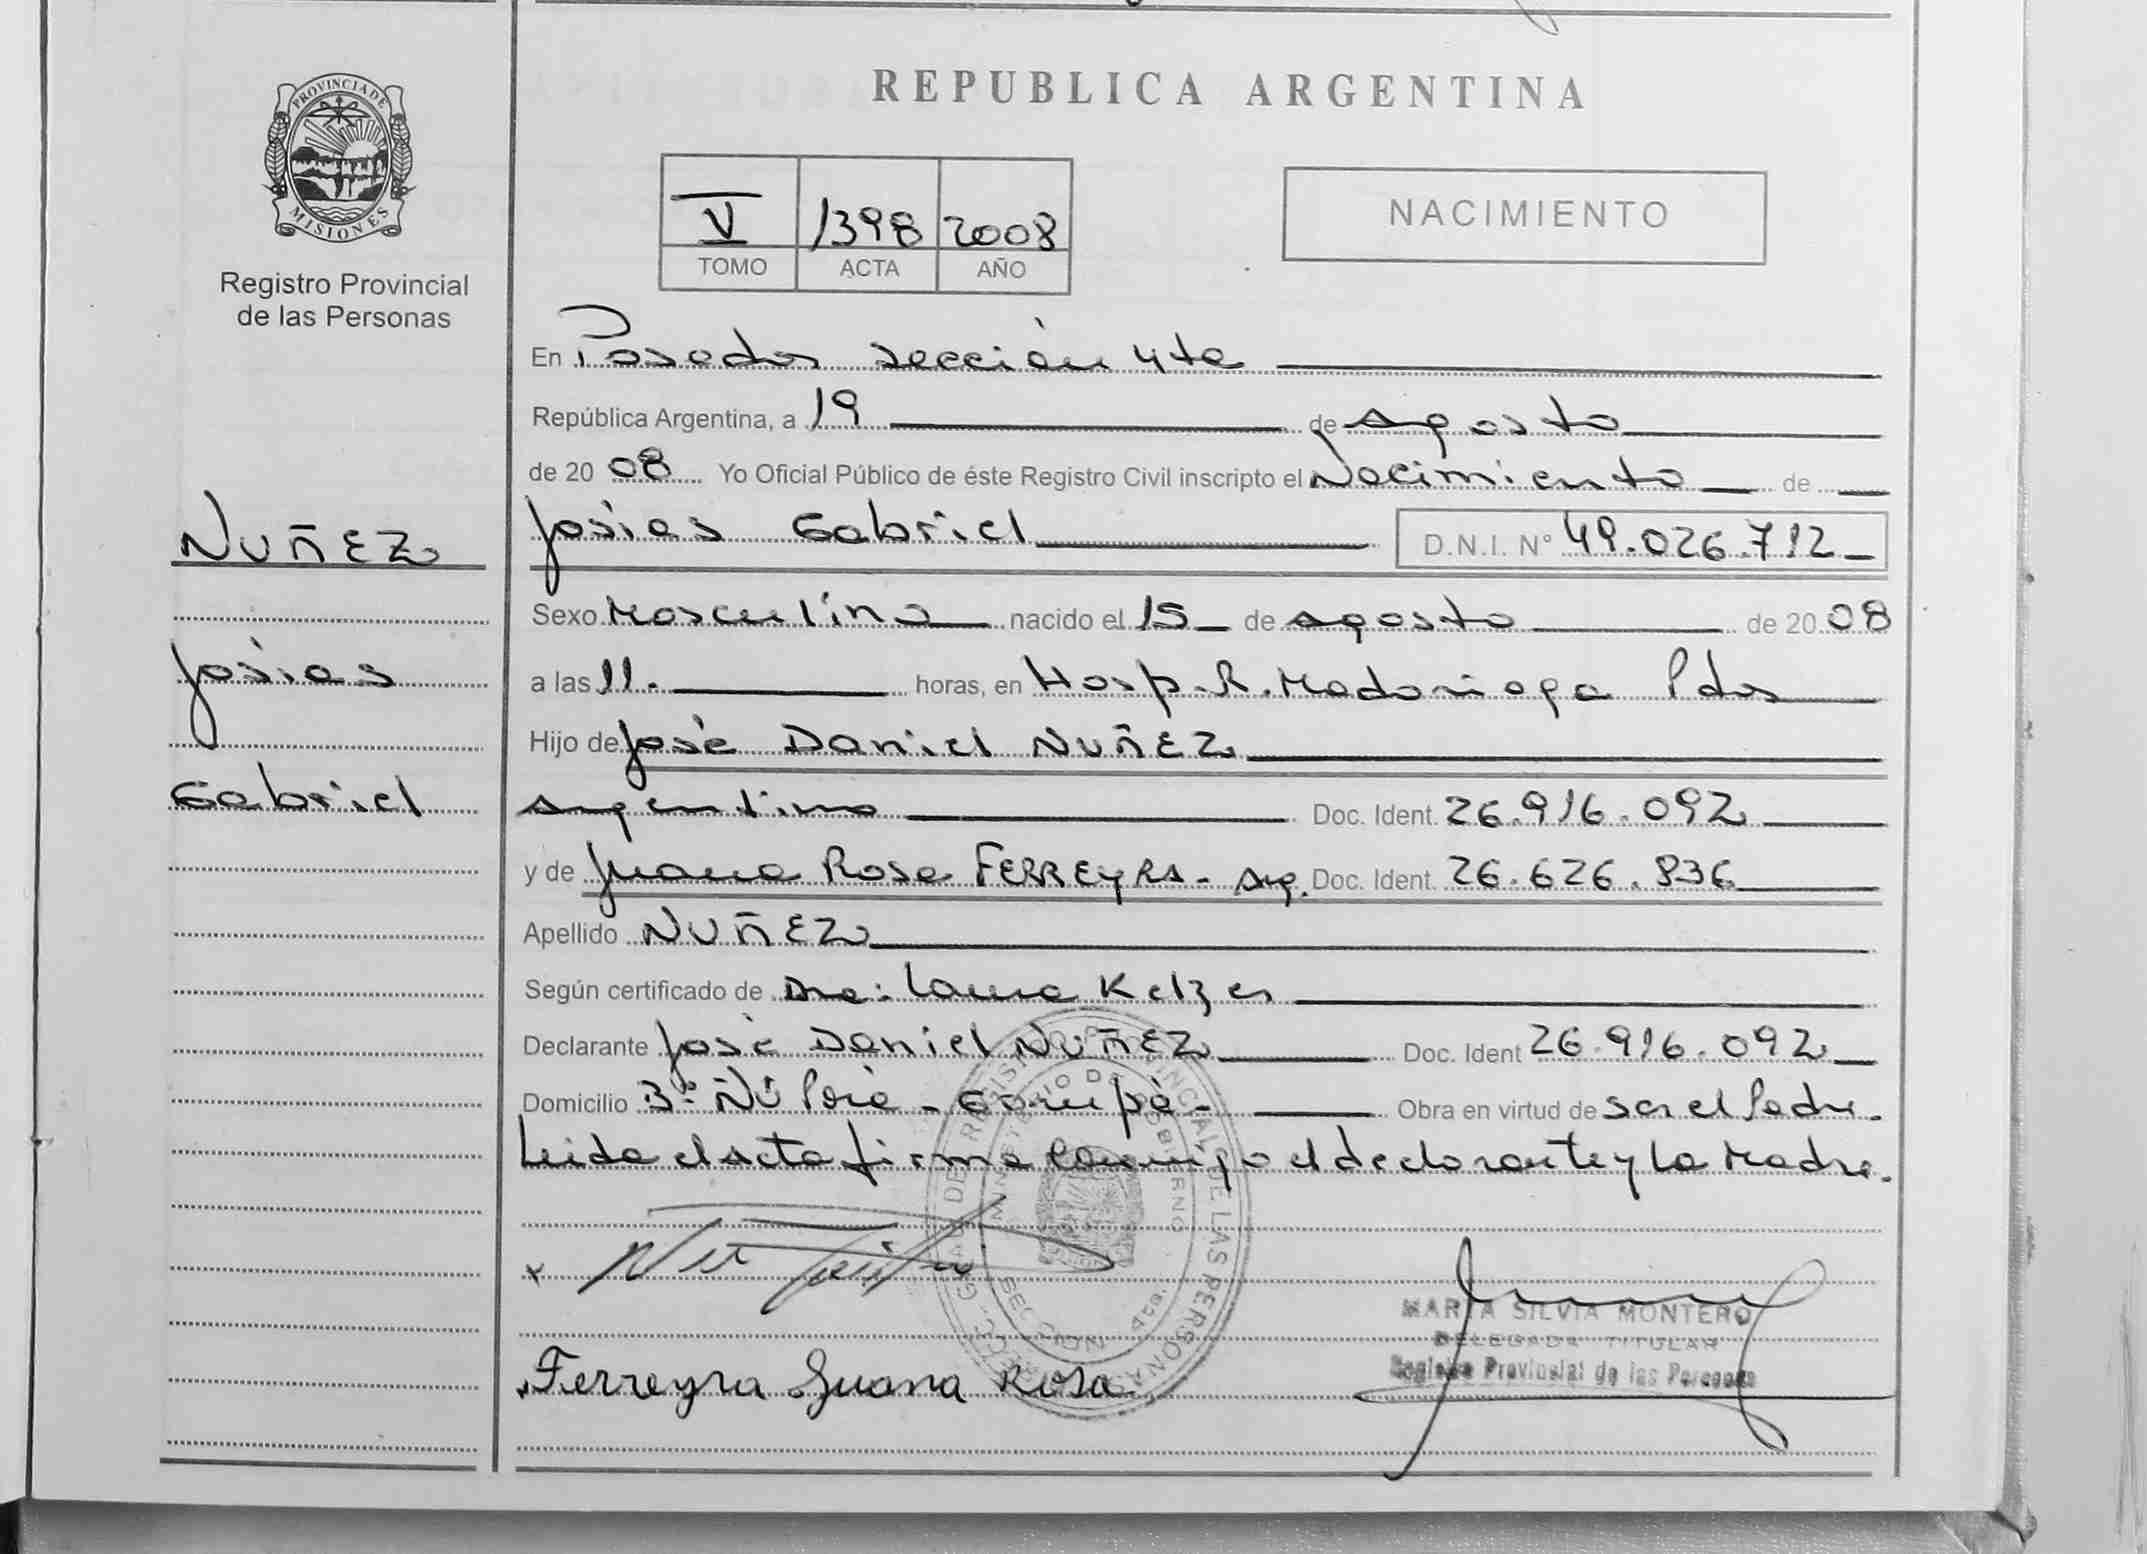 REPUBLICA ARGENTINA
PROVINCIA DE
MISIONES
Registro Provincial
de las Personas
V 1398 2008
TOMO ACTA AÑO
NACIMIENTO
En Posadas sección 4ta
República Argentina, a 19 de agosto
de 2008 Yo Oficial Público de éste Registro Civil inscripto el Nacimiento de
NUÑEZ
Josias Gabriel D.N.I. N° 49.026.712
Sexo Masculino nacido el 15 de agosto de 2008
Josias
a las 11. horas, en Hosp. R. Madariaga Pdas
Hijo de José Daniel NUÑEZ
Gabriel
argentino Doc. Ident. 26.916.092
y de Juana Rosa FERREYRA - arg. Doc. Ident. 26.626.836
Apellido NUÑEZ
Según certificado de Dra: Laura Kelzer
Declarante José Daniel NUÑEZ Doc. Ident 26.916.092
Domicilio Bº Ñú Porá - Garupá - Obra en virtud de ser el Padre.
Leida el acta firma conmigo el declarante y la Madre.
MINISTERIO DE GOBIERNO
DE LAS PERSONAS
SECCION
MARIA SILVIA MONTERO
DELEGADA TITULAR
Registro Provincial de las Personas
Ferreyra Juana Rosa